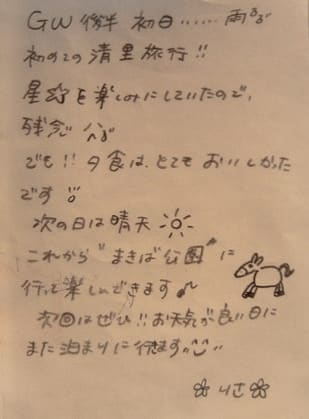 GW 後半 初日‥‥‥雨
初めての清里旅行!!
星空を楽しみにしていたので、
残念
でも!! 夕食は、とてもおいしかった
です
次の日は晴天
これから "まきば公園" に
行って楽しんできます♪
次回はぜひ!! お天気が良い日に
また泊まりに行きます。
りさ